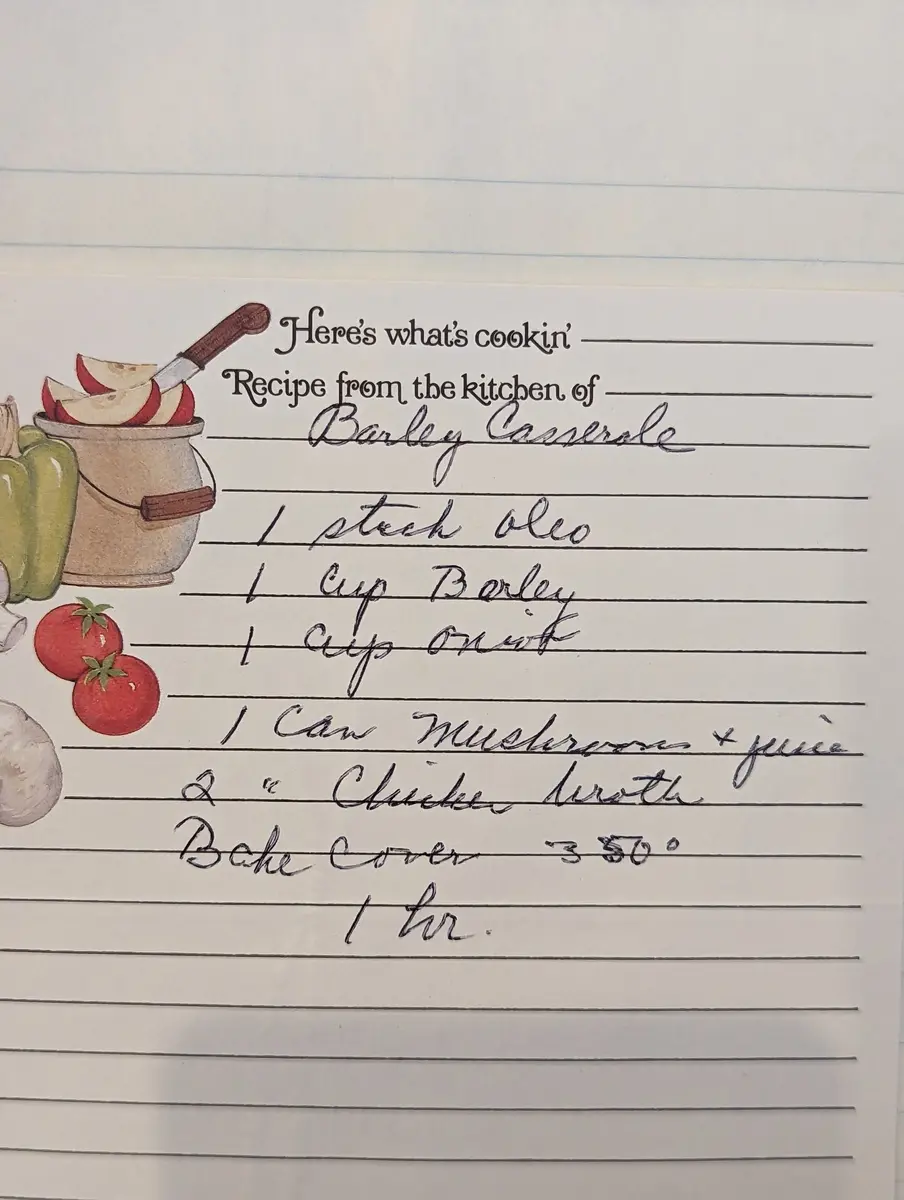 Here's what's cookin'
Recipe from the kitchen of
Barley Casserole
1 stick oleo
1 Cup Barley
1 Cup onion
1 Can Mushrooms + juice
2 " Chicken broth
Bake Cover 350°
1 hr.